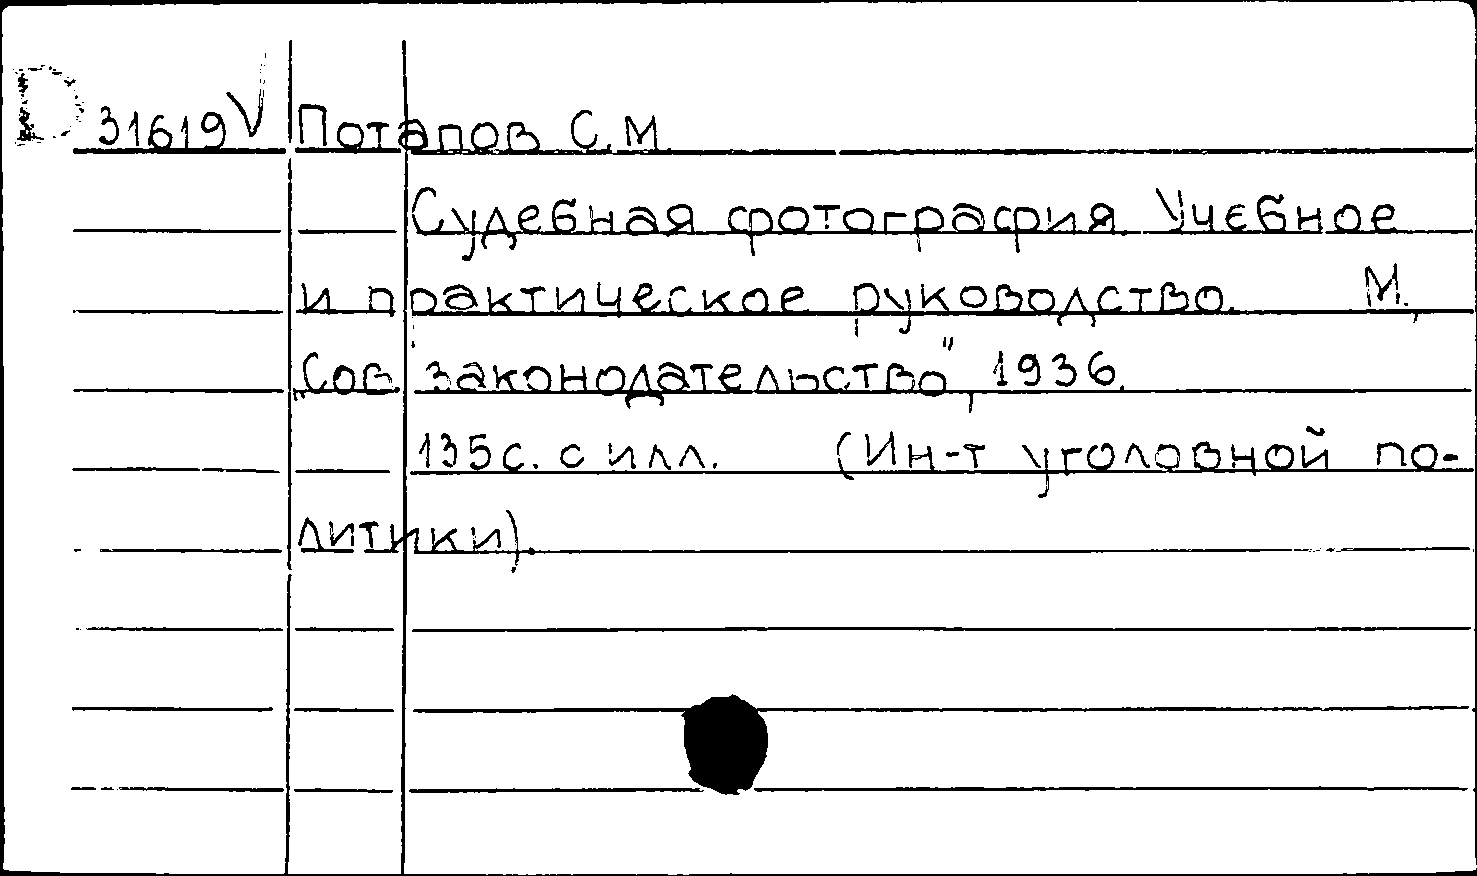 D 31619 V Потапов С.М.
Судебная фотография. Учебное
и практическое руководство. М.,
„Сов. законодательство", 1936.
135с. с илл. (Ин-т уголовной по-
литики).